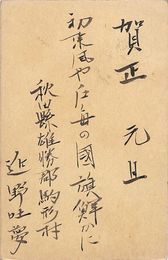 賀正 元旦
初東風や戸毎の國旗鮮かに
秋田縣雄勝郡駒形村
近野吐夢